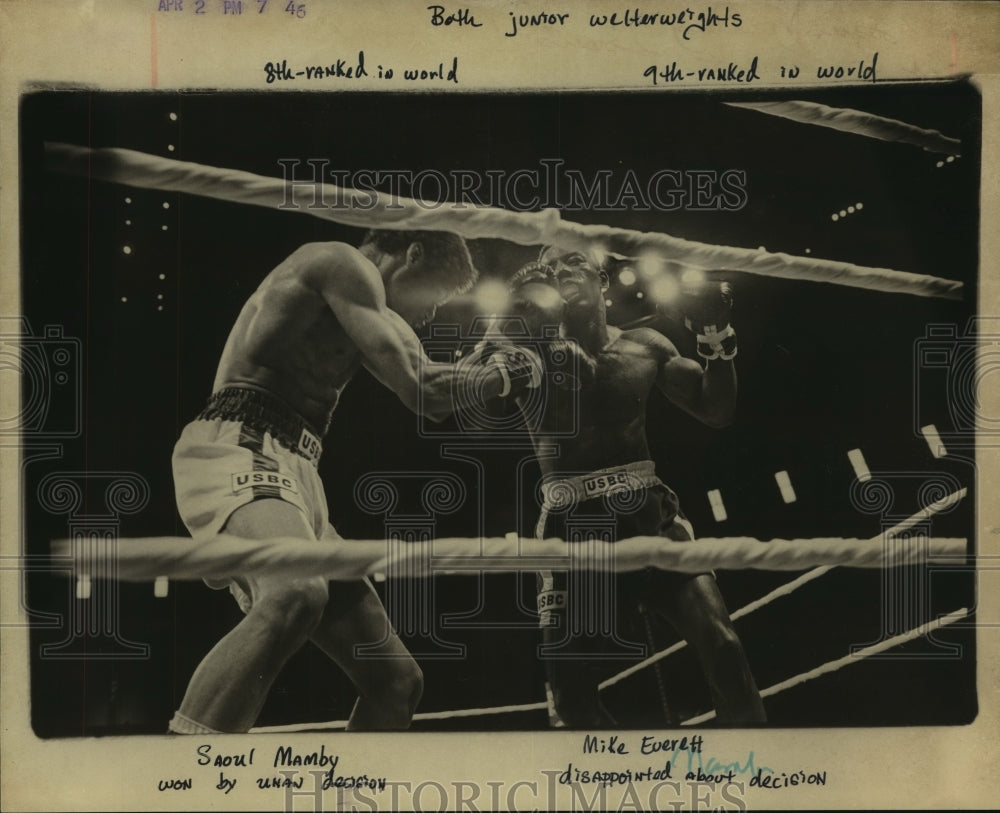 APR 2 PM 7 46
Both junior welterweights
8th-ranked in world
9th-ranked in world
HISTORIC IMAGES
USBC
USBC
USBC
USBC
Saoul Mamby
won by unan decision
Mike Everett
disappointed about decision
HISTORIC IMAGES